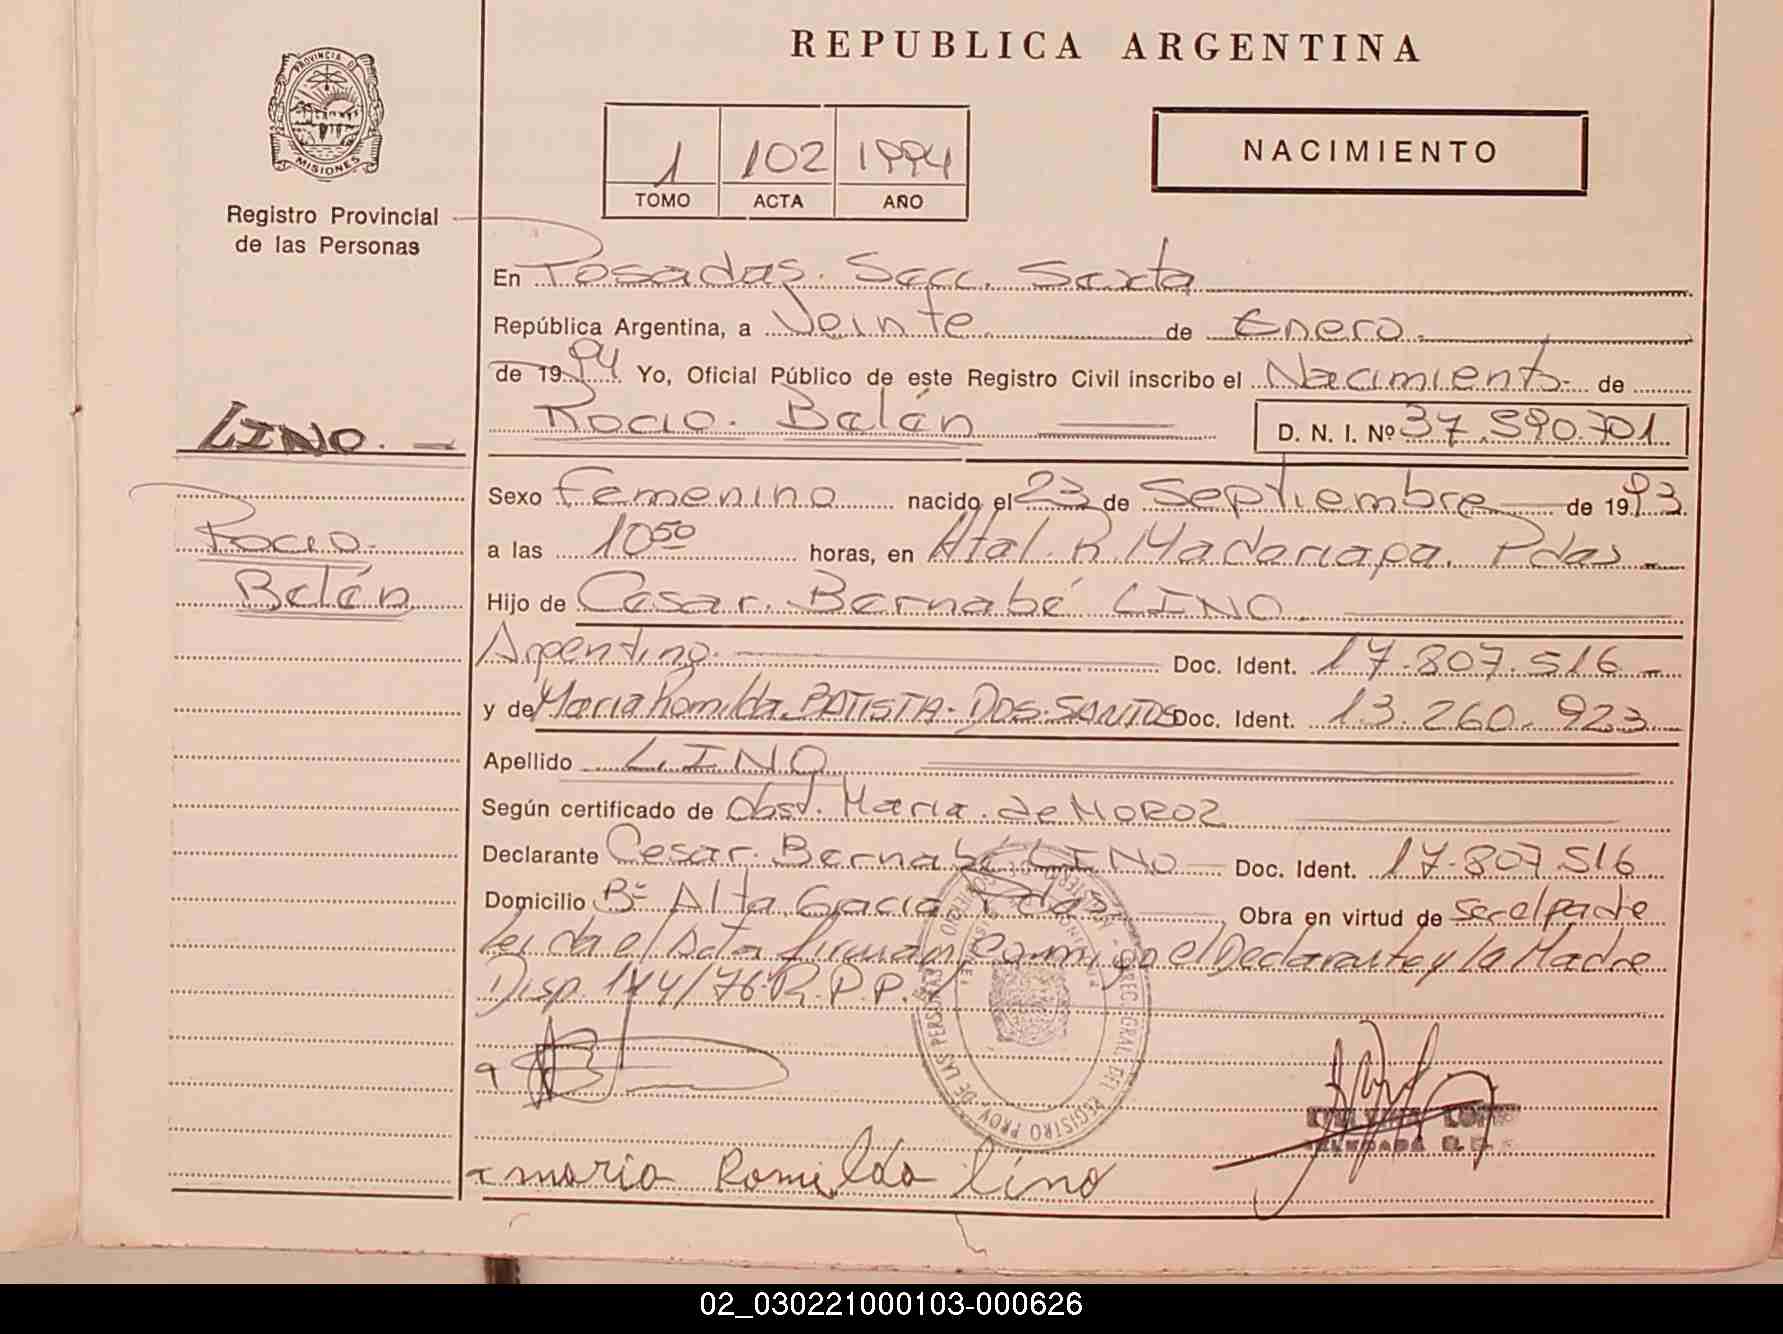 REPUBLICA ARGENTINA
PROVINCIA DE
MISIONES
Registro Provincial
de las Personas
1 102 1994
TOMO ACTA AÑO
NACIMIENTO
En Posadas. Secc. Sexta
República Argentina, a Veinte de Enero.
de 1994. Yo, Oficial Público de este Registro Civil inscribo el Nacimiento de
Rocio. Belén D. N. I. Nº 37.590.701
LINO.
Rocio.
Belén
Sexo Femenino nacido el 23 de Septiembre de 1993.
a las 10 50 horas, en Htal. R. Madariaga. Pdas
Hijo de Cesar. Bernabé LINO
Argentino. Doc. Ident. 17.807.516
y de Maria Romilda BATISTA. DOS. SANTOS Doc. Ident. 13.260.923
Apellido LINO
Según certificado de Obst. Maria. de MOROZ
Declarante Cesar. Bernabé LINO Doc. Ident. 17.807.516
Domicilio Bº Alta Gracia Pdas. Obra en virtud de ser el padre
Leida el Acta firman Conmigo el Declarante y la Madre
Disp. 144/76. R.P.P.
maria Romilda lino
02_030221000103-000626